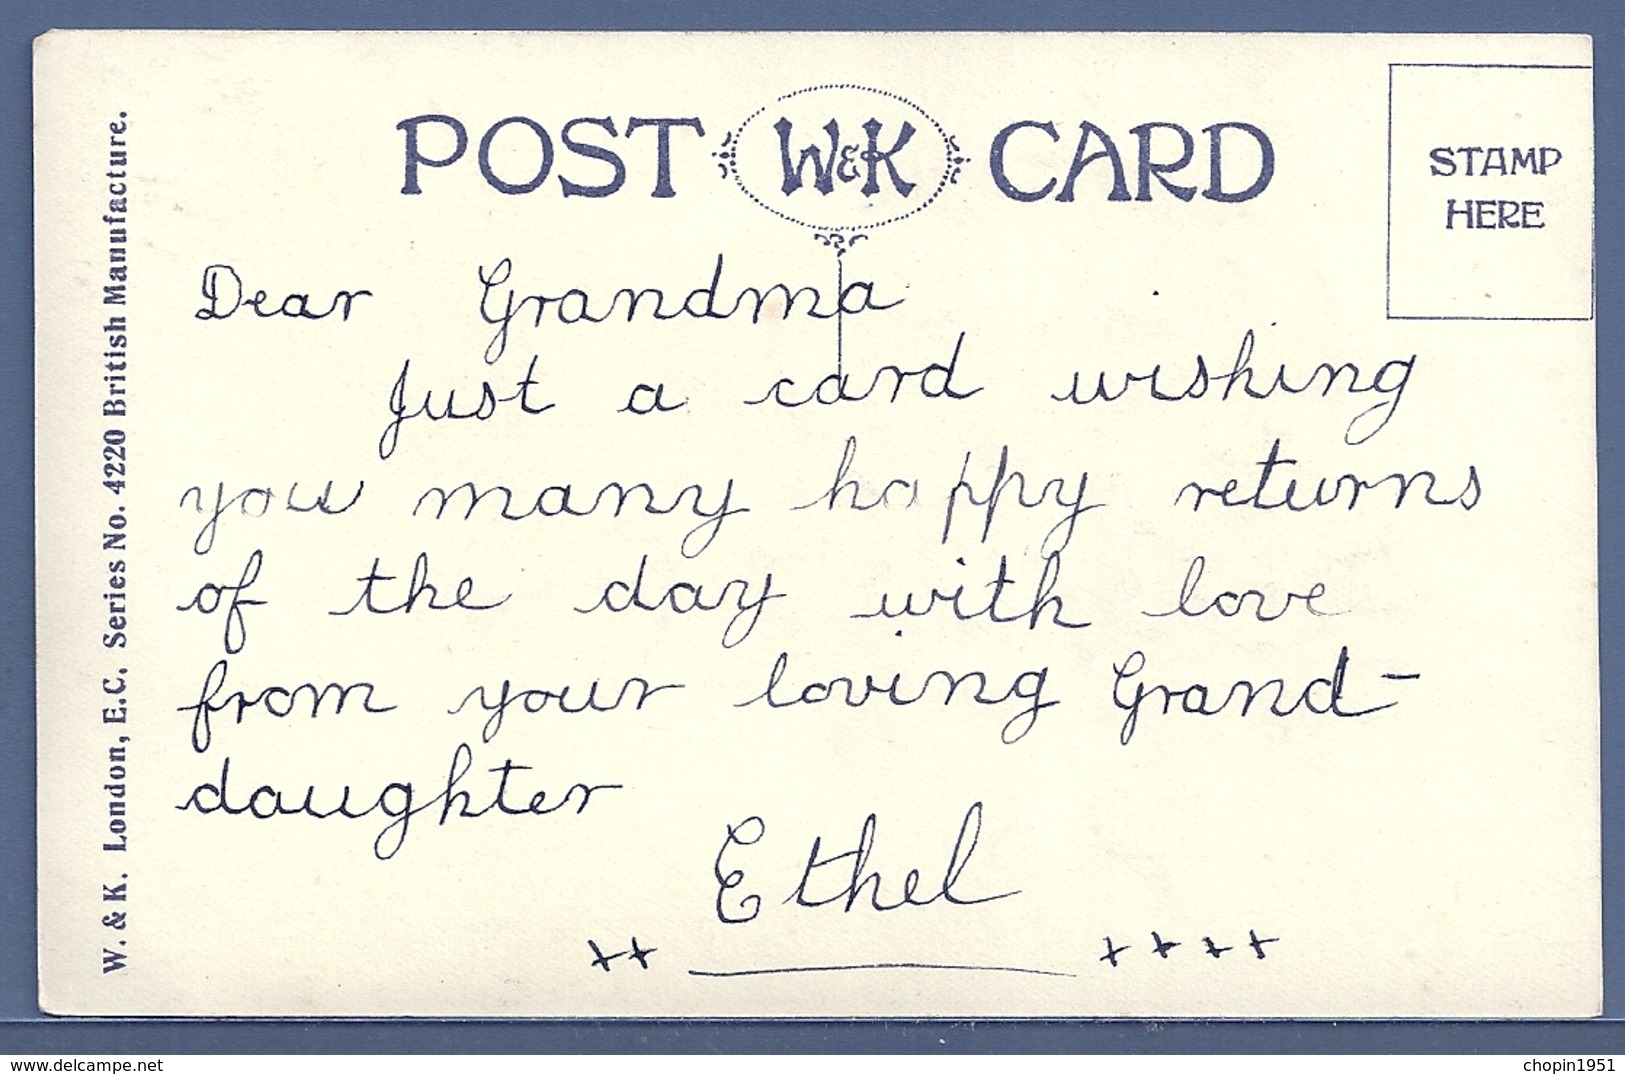 POST W&K CARD
STAMP
HERE
W. & K. London, E.C. Series No. 4220 British Manufacture.
Dear Grandma
Just a card wishing
you many happy returns
of the day with love
from your loving Grand-
daughter
Ethel
xx xxxx
www.delcampe.net
chopin1951